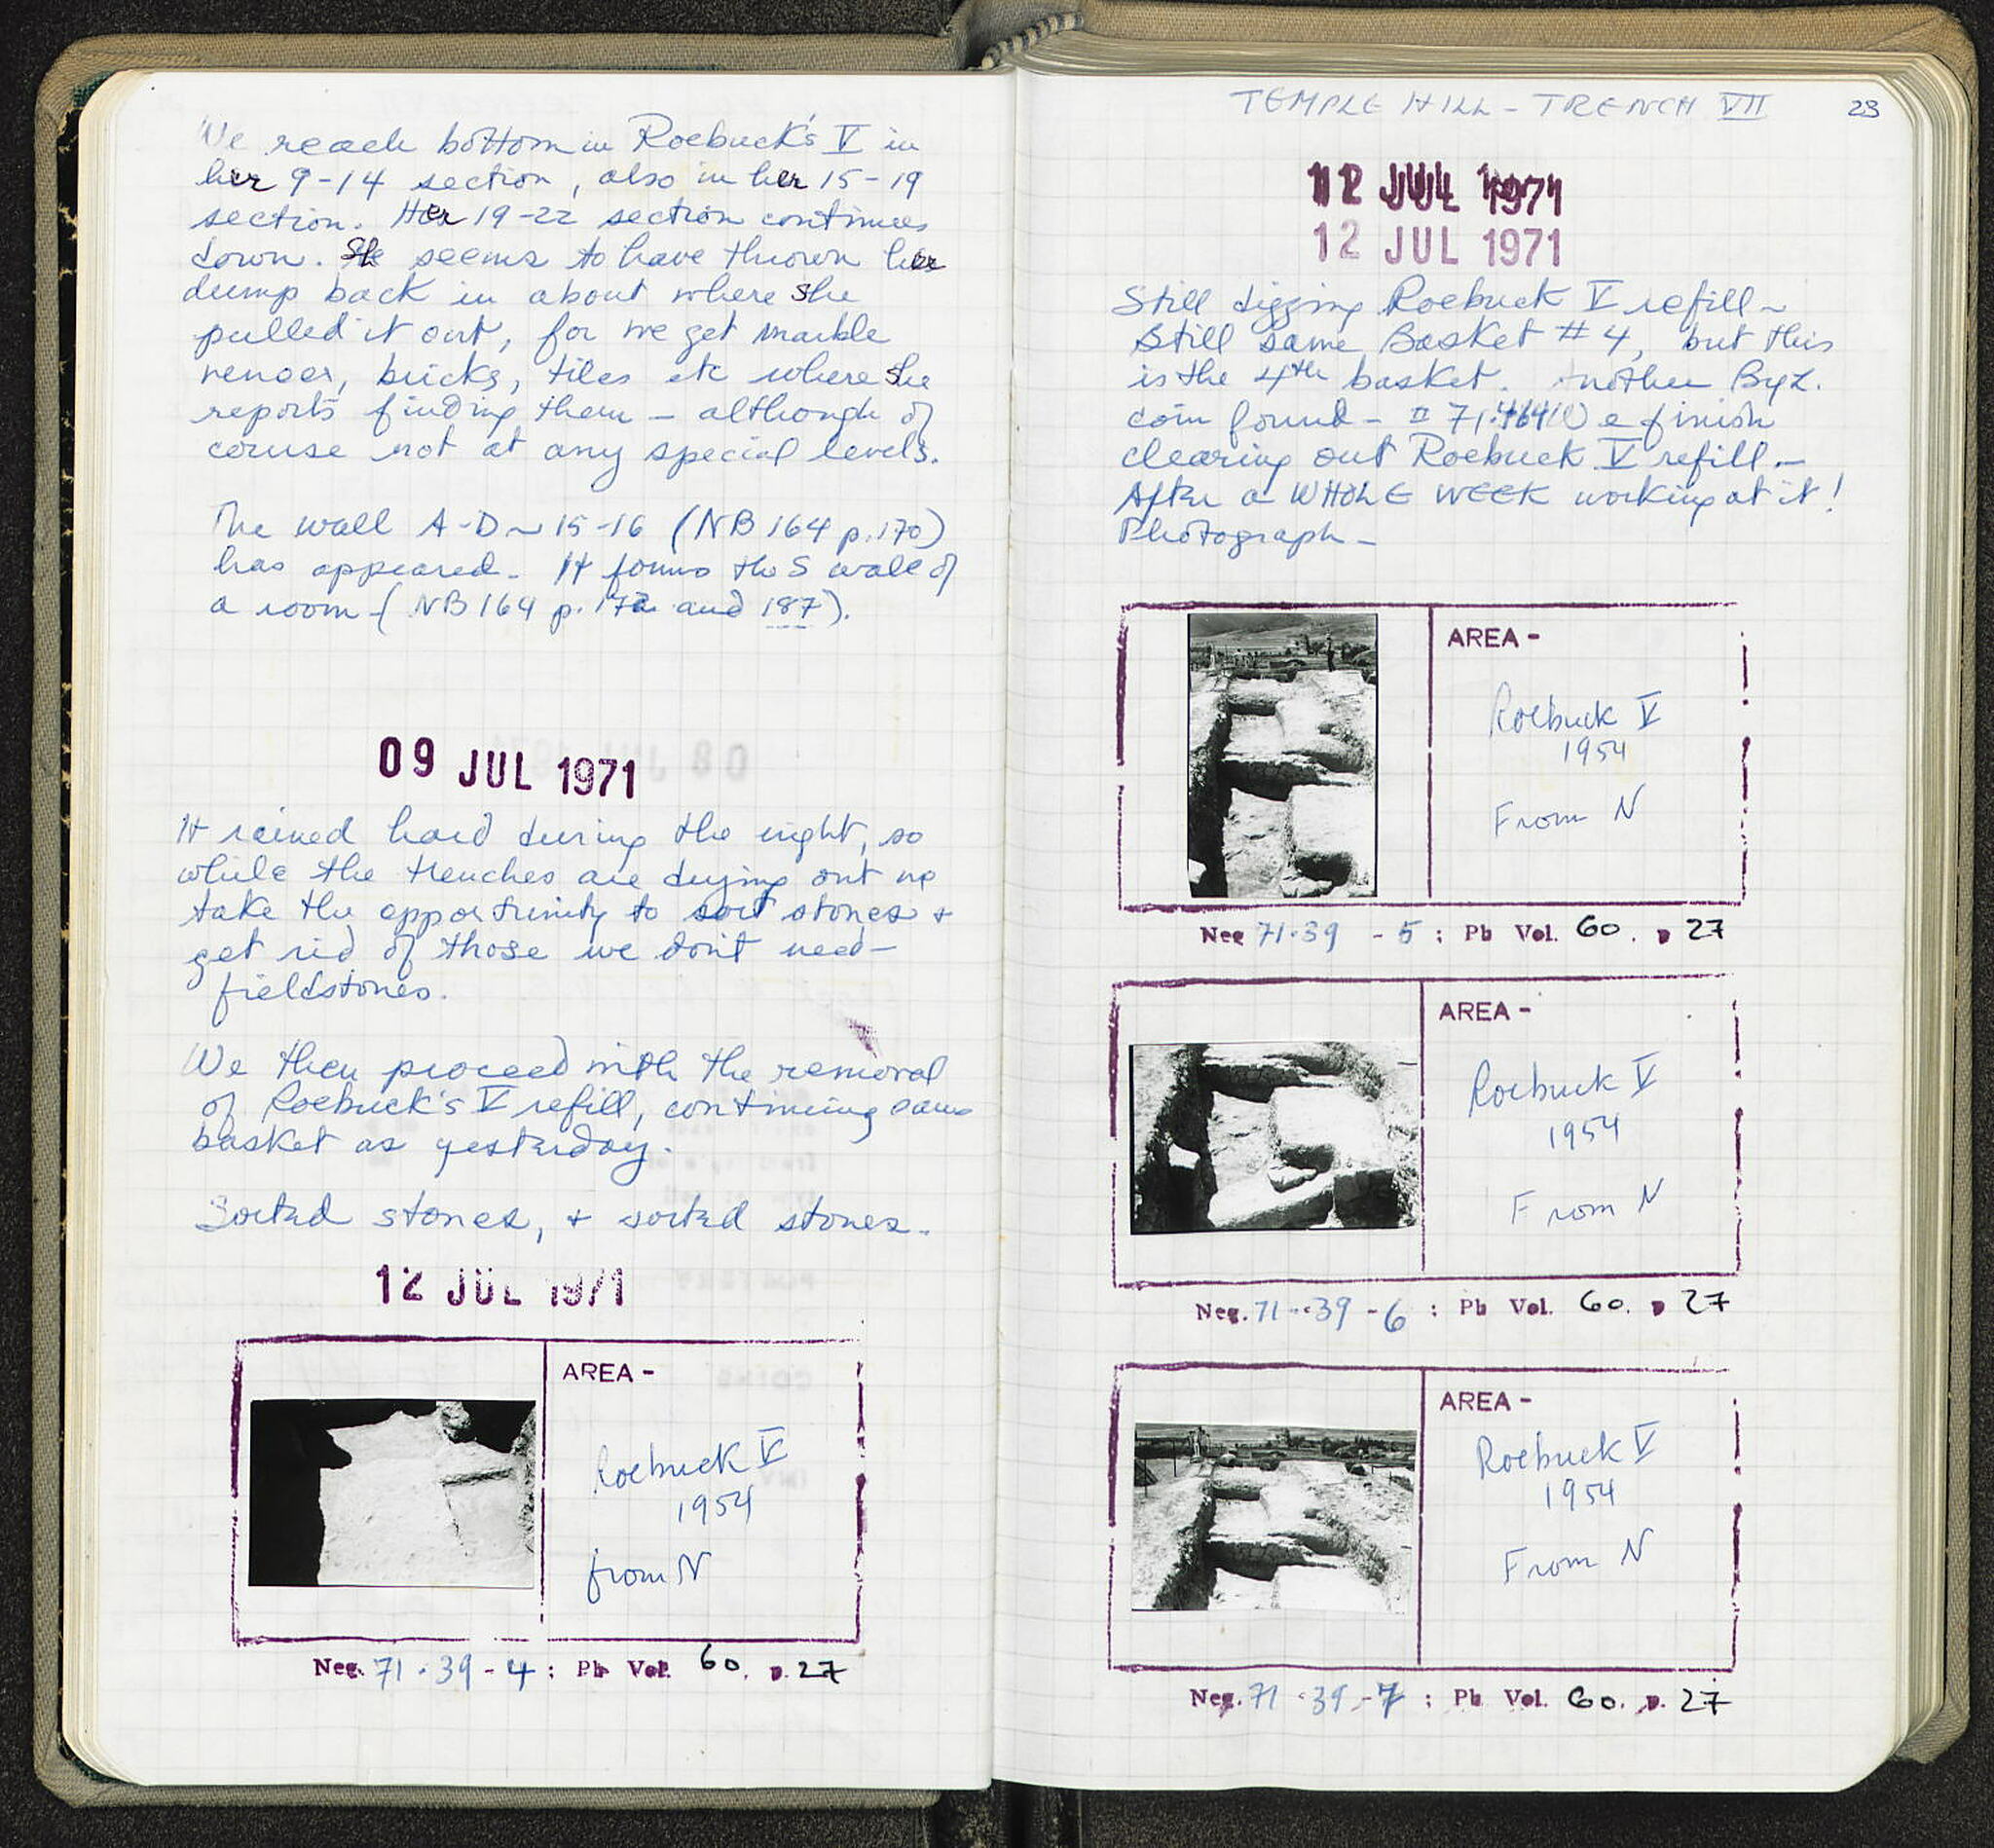 We reach bottom in Roebuck's V in
her 9-14 section, also in her 15-19
section. Her 19-22 section continues
down. She seems to have thrown her
dump back in about where she
pulled it out, for we get marble
veneer, bricks, tiles etc where she
reports finding them - although of
course not at any special levels.
The wall A-D ~ 15-16 (NB 164 p.170)
has appeared. It forms the S wall of
a room - (NB 164 p. and 187).
09 JUL 1971
It rained hard during the night, so
while the trenches are drying out we
take the opportunity to sort stones +
get rid of those we don't need -
fieldstones.
We then proceed with the removal
of Roebuck's V refill, continuing same
basket as yesterday.
Sorted stones, + sorted stones.
12 JUL 1971
AREA -
Roebuck V
1954
from N
Neg. 71.39-4; Ph Vol. 60. p. 27
TEMPLE HILL - TRENCH VII
23
12 JUL 1971
12 JUL 1971
Still digging Roebuck V refill ~
Still same Basket # 4, but this
is the 4th basket. Another Byz.
coin found - We finish
clearing out Roebuck V refill. -
After a WHOLE WEEK working at it!
Photograph -
AREA -
Roebuck V
1954
From N
Neg 71.39 - 5; Ph Vol. 60. p 27
AREA -
Roebuck V
1954
From N
Neg. 71-39-6 : Ph Vol. 60. p 27
AREA -
Roebuck V
1954
From N
Neg. 71.39-7 ; Ph Vol. 60. p. 27